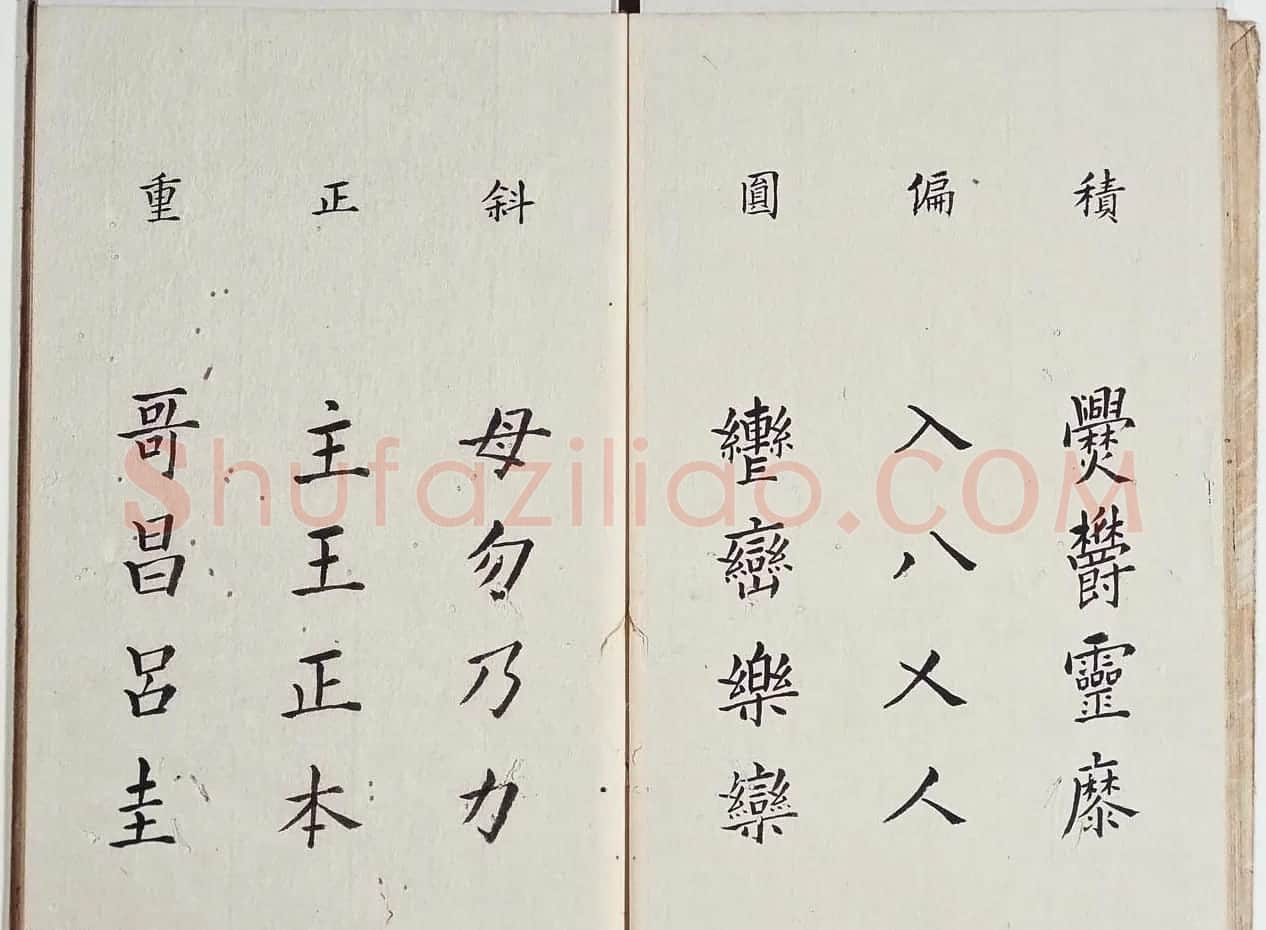 積 爨鬱靈
偏 入八乂人
圓 轡巒樂欒
斜 母勿乃力
正 主王正本
重 哥昌呂圭
Shufaziliao.COM